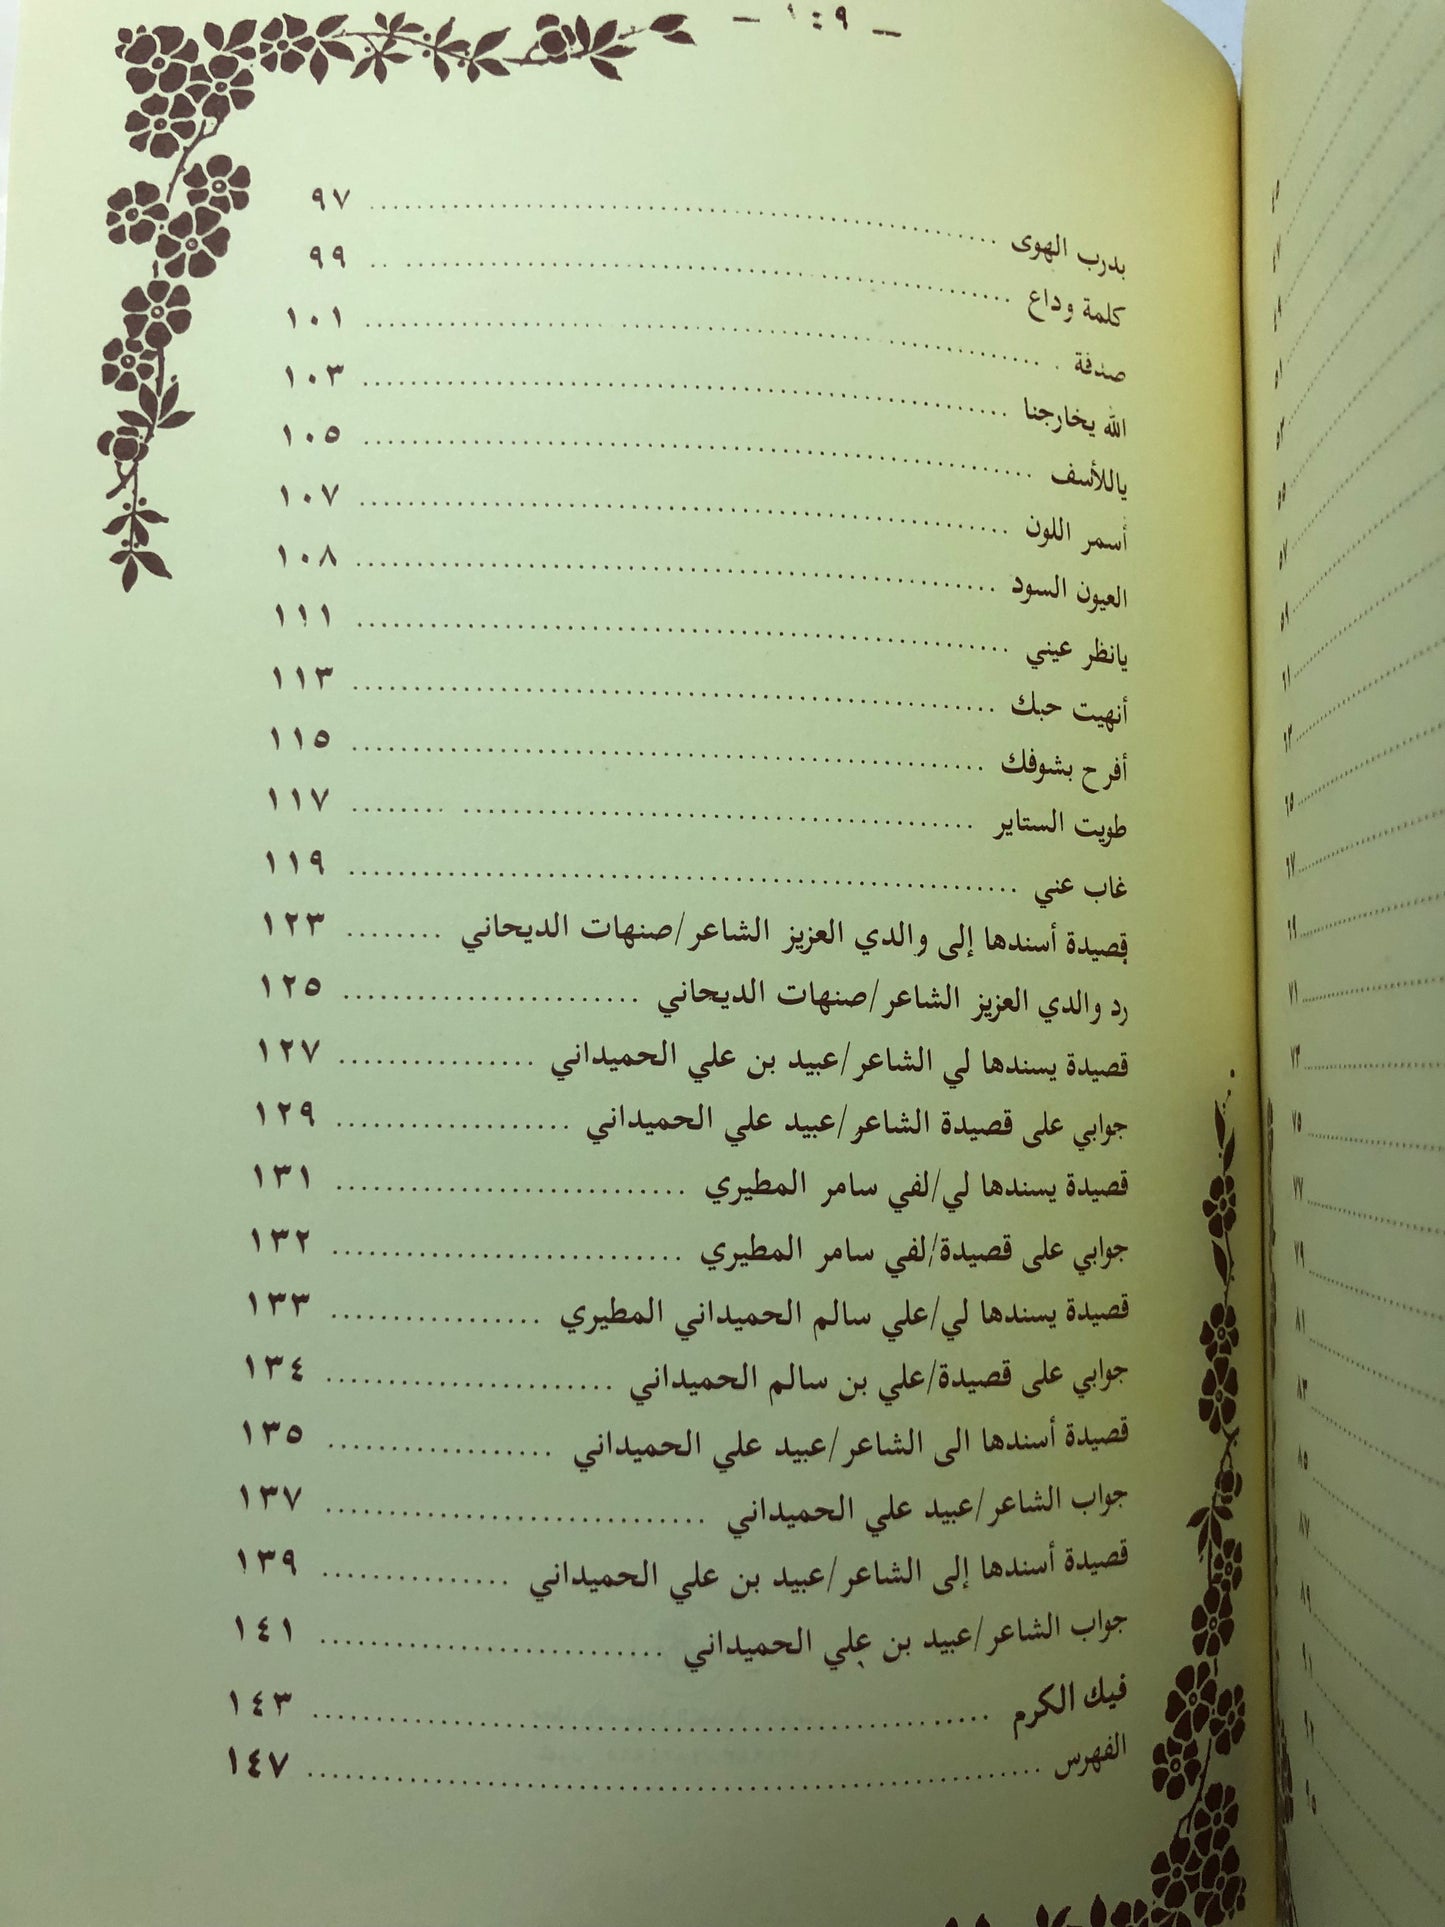 — ١٤٩ —
بدرب الهوى ........ ٩٧
كلمة وداع ........ ٩٩
صدفة ........ ١٠١
الله يخارجنا ........ ١٠٣
ياللأسف ........ ١٠٥
أسمر اللون ........ ١٠٧
العيون السود ........ ١٠٨
يانظر عيني ........ ١١١
أنهيت حبك ........ ١١٣
أفرح بشوفك ........ ١١٥
طويت الستاير ........ ١١٧
غاب عني ........ ١١٩
قصيدة أسندها إلى والدي العزيز الشاعر/صنهات الديحاني ........ ١٢٣
رد والدي العزيز الشاعر/صنهات الديحاني ........ ١٢٥
قصيدة يسندها لي الشاعر/عبيد بن علي الحميداني ........ ١٢٧
جوابي على قصيدة الشاعر/عبيد علي الحميداني ........ ١٢٩
قصيدة يسندها لي/لفي سامر المطيري ........ ١٣١
جوابي على قصيدة/لفي سامر المطيري ........ ١٣٢
قصيدة يسندها لي/علي سالم الحميداني المطيري ........ ١٣٣
جوابي على قصيدة/علي بن سالم الحميداني ........ ١٣٤
قصيدة أسندها الى الشاعر/عبيد علي الحميداني ........ ١٣٥
جواب الشاعر/عبيد علي الحميداني ........ ١٣٧
قصيدة أسندها إلى الشاعر/عبيد بن علي الحميداني ........ ١٣٩
جواب الشاعر/عبيد بن علي الحميداني ........ ١٤١
فيك الكرم ........ ١٤٣
الفهرس ........ ١٤٧
٤٥
٤٧
٤٩
٥١
٥٣
٥٥
٥٧
٥٩
٦١
٦٣
٦٥
٦٧
٦٩
٧١
٧٣
٧٥
٧٧
٧٩
٨١
٨٣
٨٥
٨٧
٨٩
٩١
٩٥